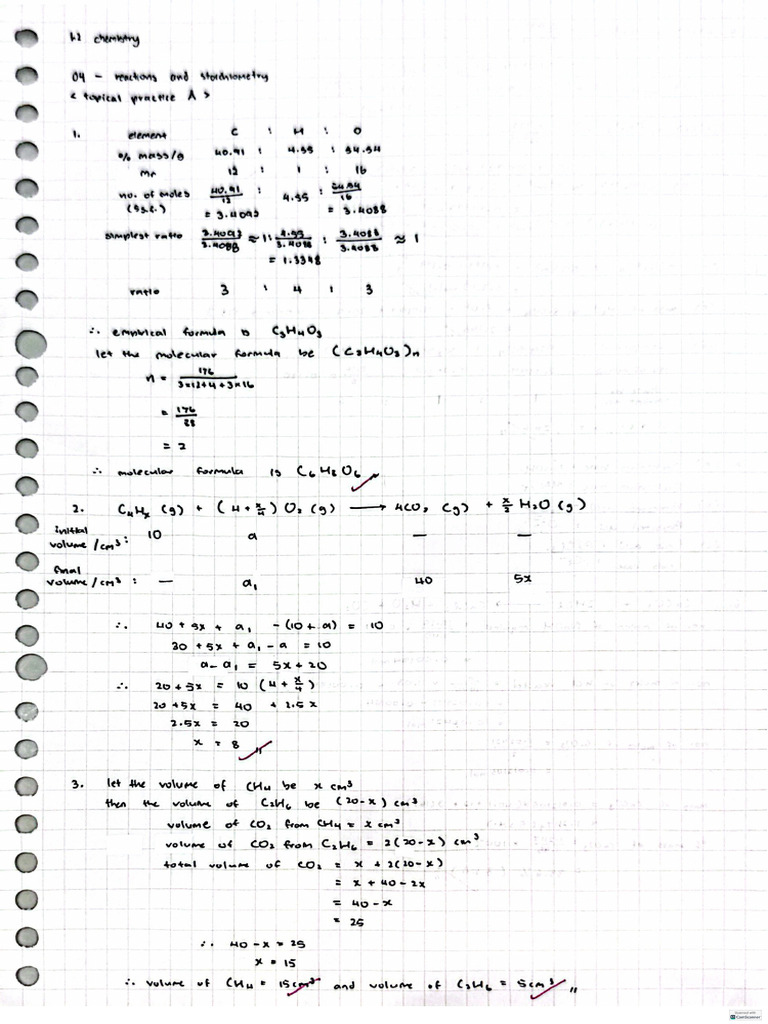 h2 chemistry
04 - reactions and stoichiometry
< topical practice A >
1. element C : H : O
% mass/g 40.91 : 4.55 : 54.54
mr 12 1 16
no. of moles 40.91/12 : 4.55 : 54.54/16
(5s.f.) = 3.4092 = 3.4088
simplest ratio 3.4092/3.4088 ≈ 1 : 4.55/3.4088 : 3.4088/3.4088 ≈ 1
= 1.3348
ratio 3 : 4 : 3
∴ empirical formula is C₃H₄O₃
let the molecular formula be (C₃H₄O₃)n
n = 176/(3×12+4+3×16)
= 176/88
= 2
∴ molecular formula is C₆H₈O₆
2. C₄Hₓ (g) + (4+x/4) O₂ (g) ⟶ 4CO₂ (g) + x/2 H₂O (g)
initial volume/cm³ : 10 a — —
final volume/cm³ : — a₁ 40 5x
∴ 40 + 5x + a₁ - (10 + a) = 10
30 + 5x + a₁ - a = 10
a - a₁ = 5x + 20
∴ 20 + 5x = 10 (4 + x/4)
20 + 5x = 40 + 2.5x
2.5x = 20
x = 8
3. let the volume of CH₄ be x cm³
then the volume of C₂H₆ be (20-x) cm³
volume of CO₂ from CH₄ = x cm³
volume of CO₂ from C₂H₆ = 2(20-x) cm³
total volume of CO₂ = x + 2(20-x)
= x + 40 - 2x
= 40 - x
= 25
∴ 40 - x = 25
x = 15
∴ volume of CH₄ = 15cm³ and volume of C₂H₆ = 5cm³
CamScanner